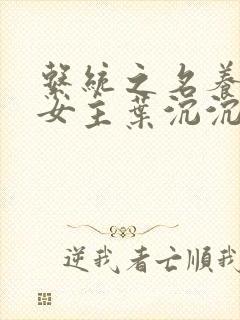 繫統之名養
女主葉沉沉
逆我者亡順我